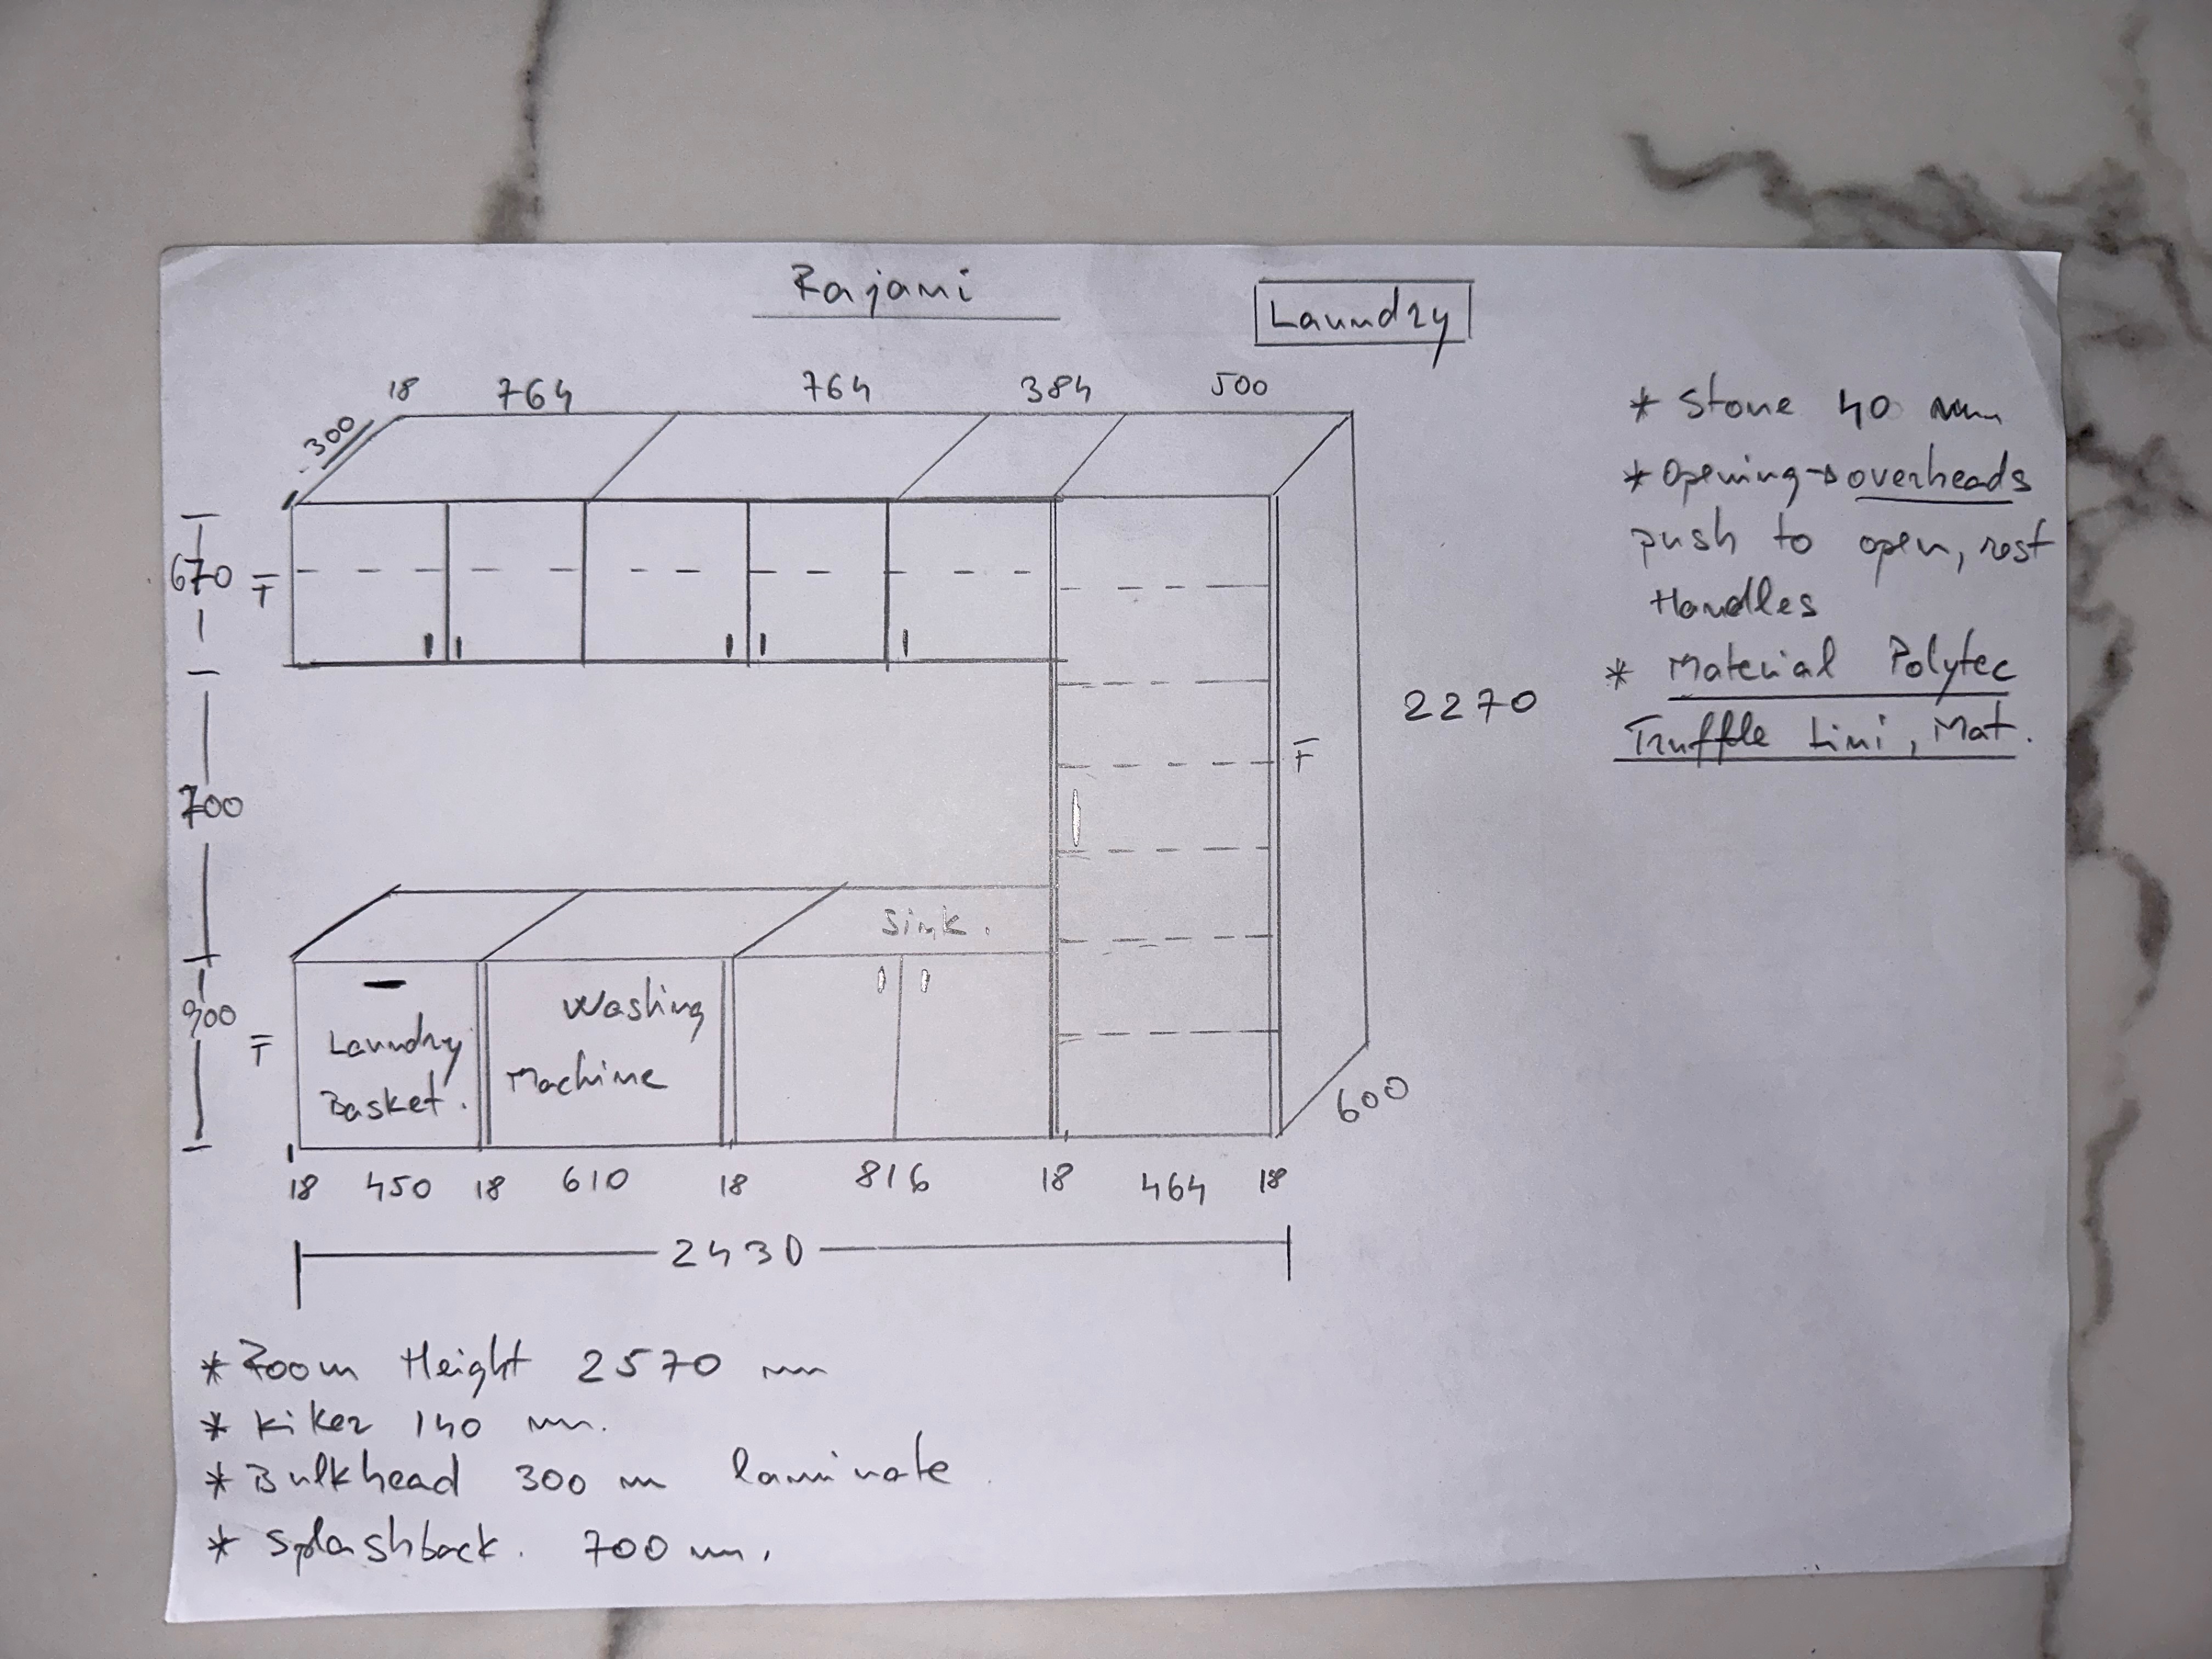 Rajani
Laundry
18 764 764 384 500
300
670 F
700
900 F
F
2270
600
Sink.
Laundry
Basket.
Washing
Machine
18 450 18 610 18 816 18 464 18
2430
* Room Height 2570 mm
* Kiker 140 mm.
* Bulkhead 300 m laminate
* Splashback. 700 mm.
* Stone 40 mm
* Opening → overheads
push to open, rest
Handles
* Material Polytec
Truffle Lini, Mat.